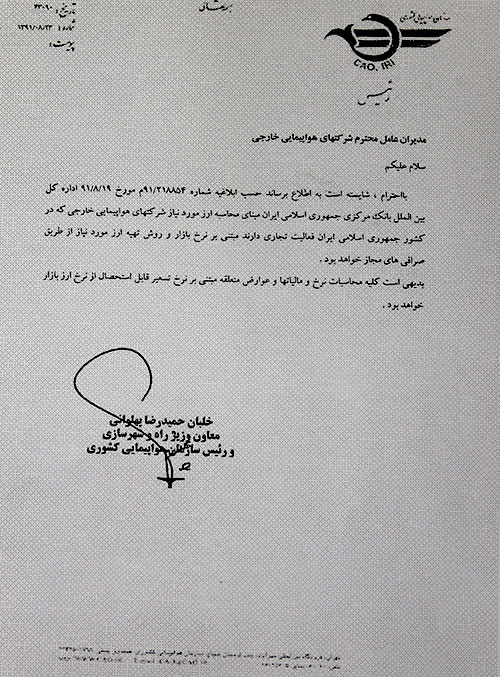 بسمه تعالی
سازمان هواپیمایی کشوری
CAO, IRI
رئیس
تاریخ: ۴۳۰۹۰
شماره: ۱۳۹۱/۰۸/۲۳
پیوست:
مدیران عامل محترم شرکتهای هواپیمایی خارجی
سلام علیکم
بااحترام ، شایسته است به اطلاع برساند حسب ابلاغیه شماره ۹۱/۲۱۸۸۵۴م مورخ ۹۱/۸/۱۹ اداره کل
بین الملل بانک مرکزی جمهوری اسلامی ایران مبنای محاسبه ارز مورد نیاز شرکتهای هواپیمایی خارجی که در
کشور جمهوری اسلامی ایران فعالیت تجاری دارند مبتنی بر نرخ بازار و روش تهیه ارز مورد نیاز از طریق
صرافی های مجاز خواهد بود .
بدیهی است کلیه محاسبات نرخ و مالیاتها و عوارض متعلقه مبتنی بر نرخ تسعیر قابل استحصال از نرخ ارز بازار
خواهد بود .
خلبان حمیدرضا پهلوانی
معاون وزیر راه و شهرسازی
و رئیس سازمان هواپیمایی کشوری